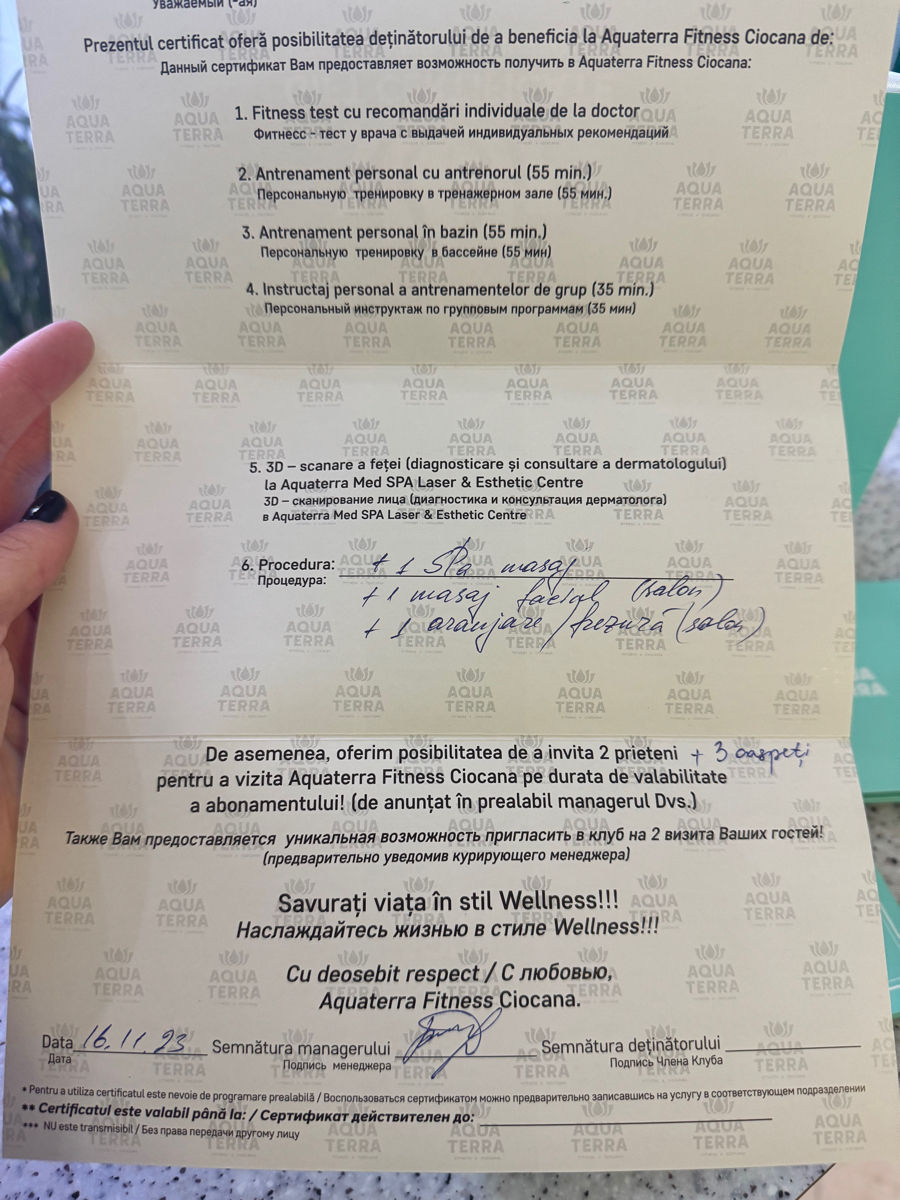 Уважаемый (-ая)
Prezentul certificat oferă posibilitatea deținătorului de a beneficia la Aquaterra Fitness Ciocana de:
Данный сертификат Вам предоставляет возможность получить в Aquaterra Fitness Ciocana:
1. Fitness test cu recomandări individuale de la doctor
Фитнесс - тест у врача с выдачей индивидуальных рекомендаций
2. Antrenament personal cu antrenorul (55 min.)
Персональную тренировку в тренажерном зале (55 мин.)
3. Antrenament personal în bazin (55 min.)
Персональную тренировку в бассейне (55 мин)
4. Instructaj personal a antrenamentelor de grup (35 min.)
Персональный инструктаж по групповым программам (35 мин)
5. 3D – scanare a feței (diagnosticare și consultare a dermatologului)
la Aquaterra Med SPA Laser & Esthetic Centre
3D – сканирование лица (диагностика и консультация дерматолога)
в Aquaterra Med SPA Laser & Esthetic Centre
6. Procedura: + 1 SPa masaj
Процедура:
+ 1 masaj facial (salon)
+ 1 aranjare / frezură (salon)
De asemenea, oferim posibilitatea de a invita 2 prieteni + 3 oaspeți
pentru a vizita Aquaterra Fitness Ciocana pe durata de valabilitate
a abonamentului! (de anunțat în prealabil managerul Dvs.)
Также Вам предоставляется уникальная возможность пригласить в клуб на 2 визита Ваших гостей!
(предварительно уведомив курирующего менеджера)
Savurați viața în stil Wellness!!!
Наслаждайтесь жизнью в стиле Wellness!!!
Cu deosebit respect / С любовью,
Aquaterra Fitness Ciocana.
Data 16.11.23 Semnătura managerului Semnătura deținătorului
Дата Подпись менеджера Подпись Члена Клуба
* Pentru a utiliza certificatul este nevoie de programare prealabilă / Воспользоваться сертификатом можно предварительно записавшись на услугу в соответствующем подразделении
** Certificatul este valabil până la: / Сертификат действителен до:
*** NU este transmisibil / Без права передачи другому лицу